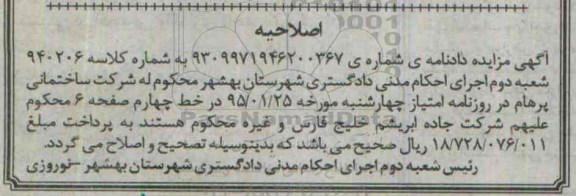 اصلاحیه
آگهی مزایده دادنامه ی شماره ی ۹۳۰۹۹۷۱۹۴۶۲۰۰۳۶۷ به شماره کلاسه ۹۴۰۲۰۶
شعبه دوم اجرای احکام مدنی دادگستری شهرستان بهشهر محکوم له شرکت ساختمانی
پرهام در روزنامه امتیاز چهارشنبه مورخه ۹۵/۰۱/۲۵ در خط چهارم صفحه ۶ محکوم
علیهم شرکت جاده ابریشم خلیج فارس و غیره محکوم هستند به پرداخت مبلغ
۱۸/۷۲۸/۰۷۶/۰۱۱ ریال صحیح می باشد که بدینوسیله تصحیح و اصلاح می گردد.
رئیس شعبه دوم اجرای احکام مدنی دادگستری شهرستان بهشهر -نوروزی